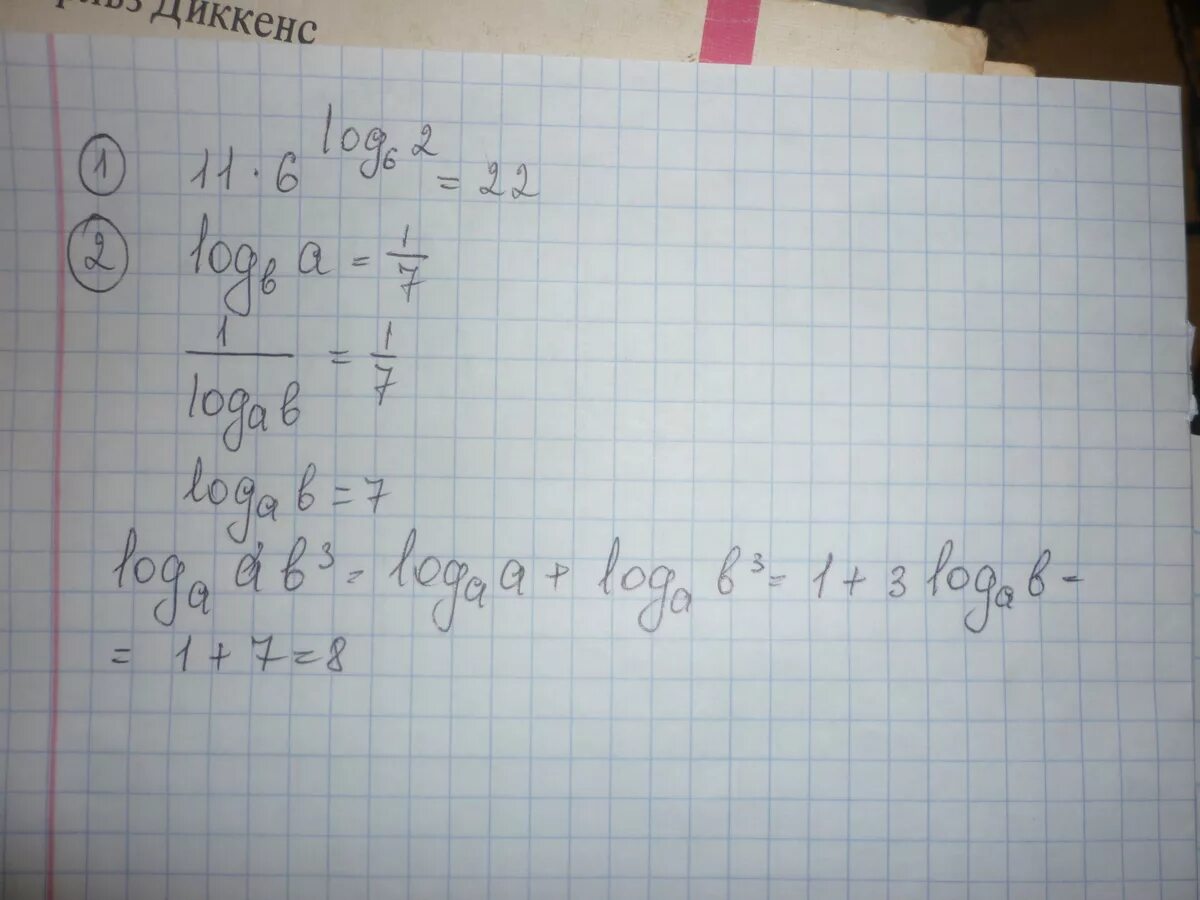 Диккенс
① 11 · 6^{log₆ 2} = 22
② log_b a = 1/7
1/(log_a b) = 1/7
log_a b = 7
log_a ab³ = log_a a + log_a b³ = 1 + 3 log_a b -
= 1 + 7 = 8